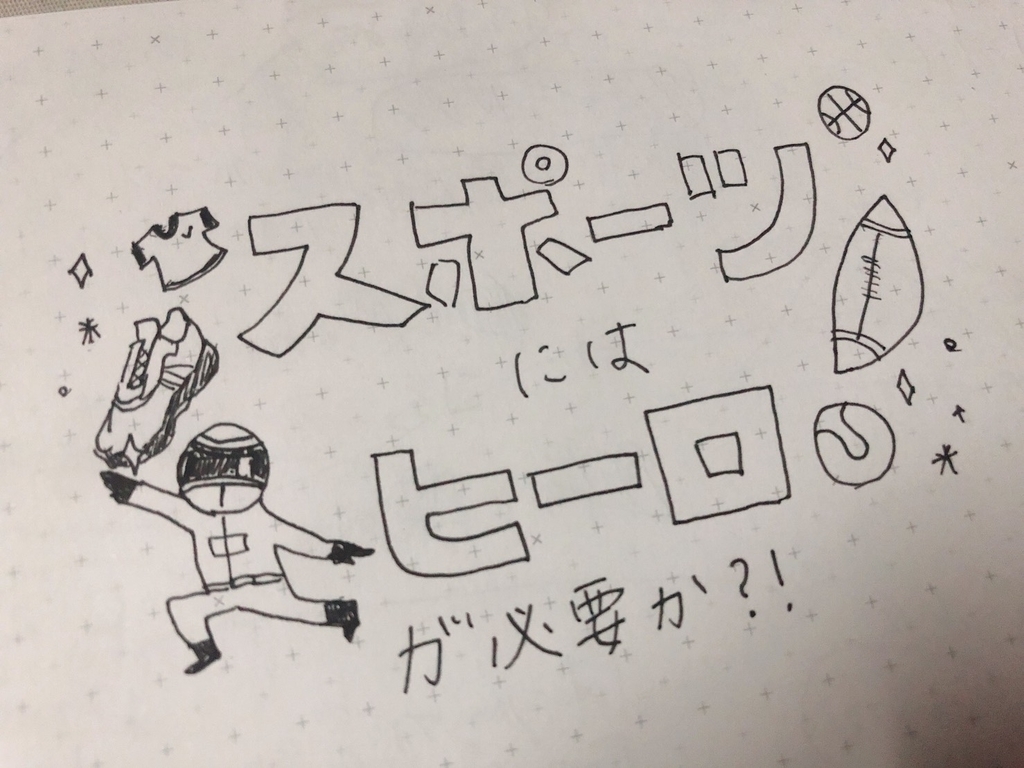 スポーツ
には
ヒーロ
が必要か?!